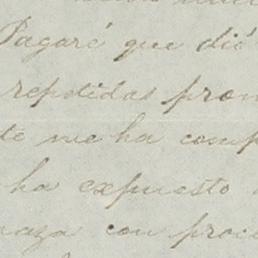 Pagaré que dió
repetidas pron
te me ha comp
ha expuesto
naza con proce